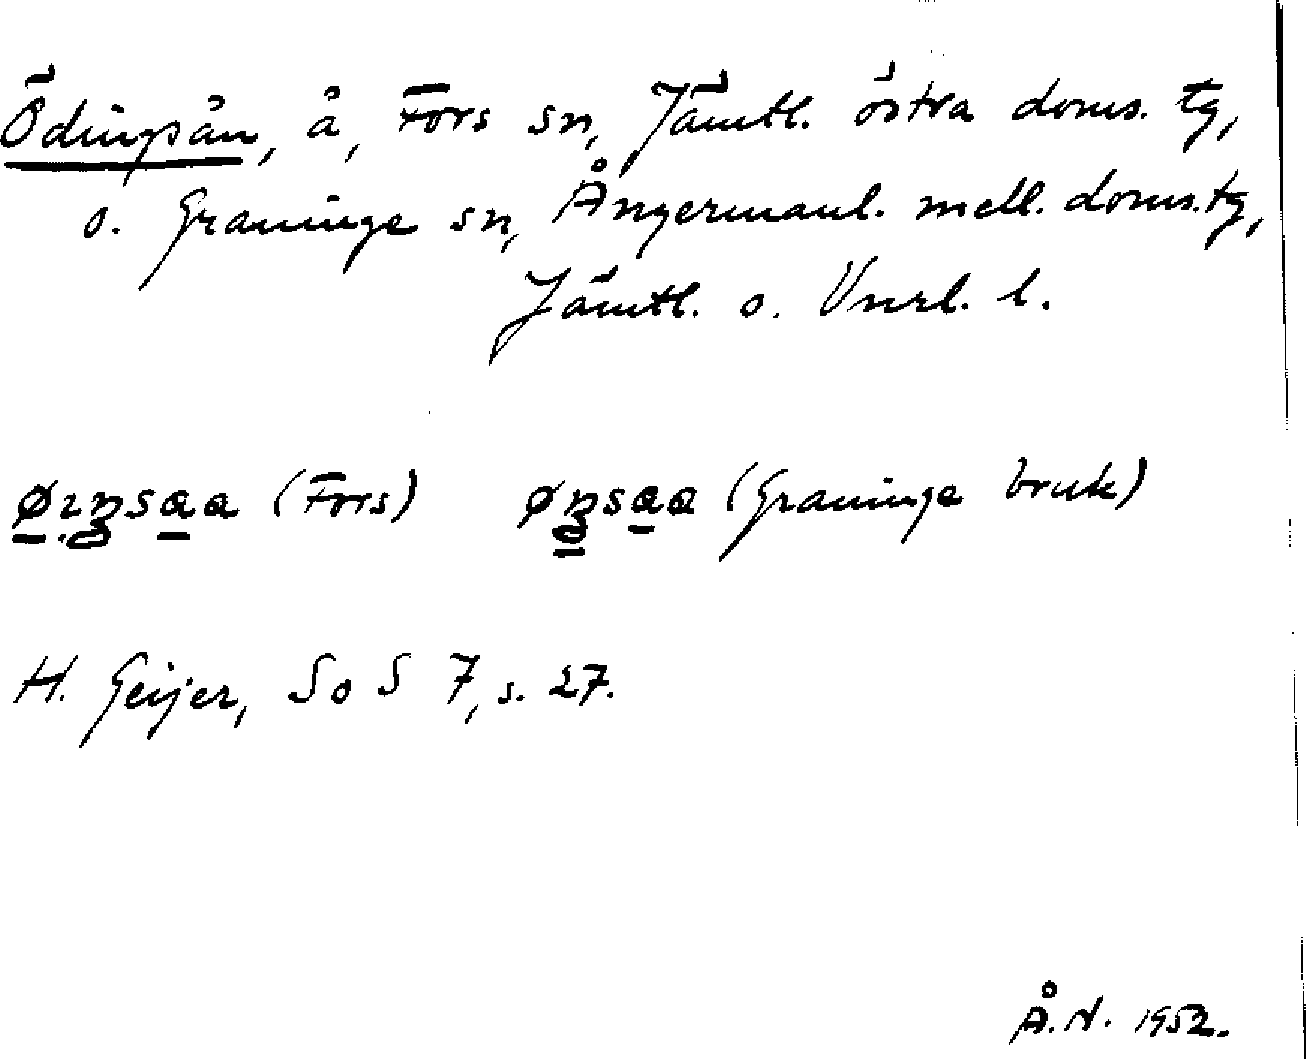 Ödingsån, å, Fors sn, Jämtl. östra doms. tg,
o. Graninge sn, Ångermanl. mell. doms.tg,
Jämtl. o. Vnrl. l.
(Fors) (Graninge bruk)
H. Geijer, SoS 7, s. 27.
Å.N. 1952.